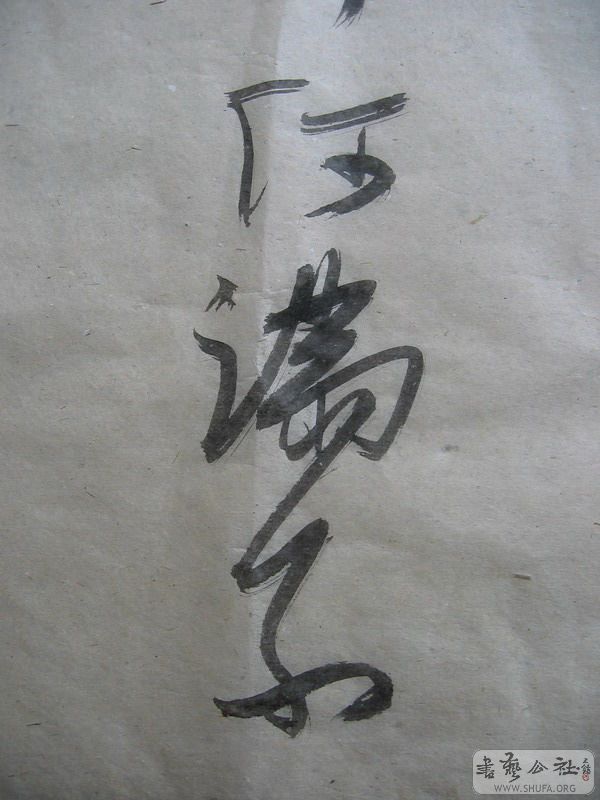 何滿子
書藝公社
WWW.SHUFA.ORG